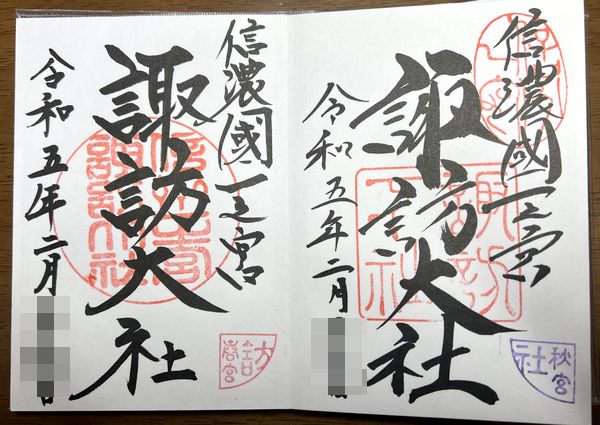 信濃國一之宮
諏訪大社
令和五年二月
秋宮
社
信濃國一之宮
諏訪大社
令和五年二月
春宮